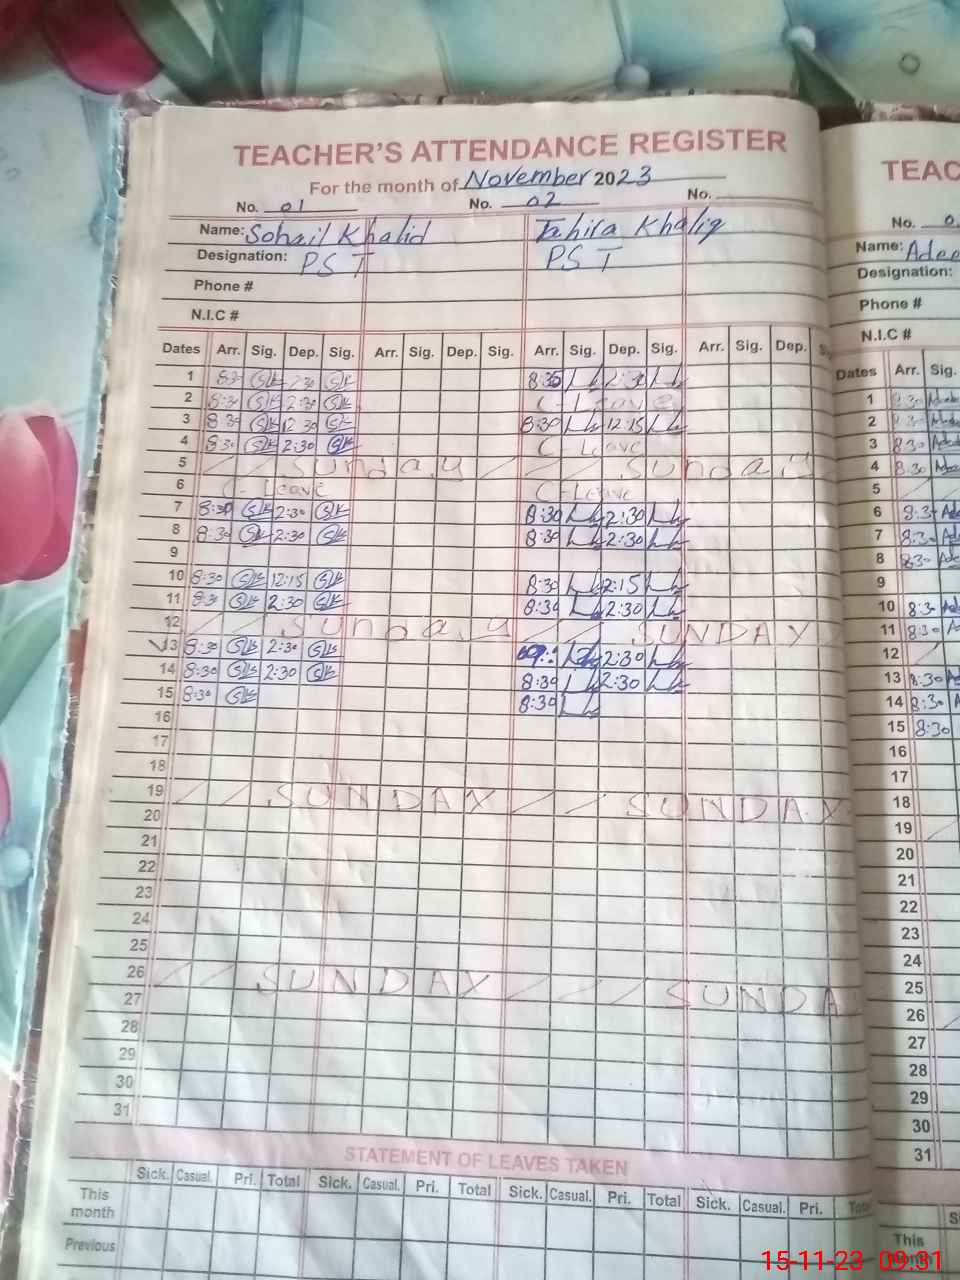 TEACHER'S ATTENDANCE REGISTER
For the month of November 2023
No. 01 No. 02 No.
Name: Sohail Khalid Tahira Khaliq
Designation: PST PST
Phone #
N.I.C #
Dates Arr. Sig. Dep. Sig. Arr. Sig. Dep. Sig. Arr. Sig. Dep. Sig. Arr. Sig. Dep.
1 8:30 SK 2:30 SK 8:35 2:30
2 8:30 SK 2:30 SK C-Leave
3 8:30 SK 12:30 SK 8:30 12:15
4 8:30 SK 2:30 SK C-Leave
5 Sunday Sunday
6 C-Leave C-Leave
7 8:30 SK 2:30 SK 8:30 2:30
8 8:30 SK 2:30 SK 8:30 2:30
9
10 8:30 SK 12:15 SK 8:30 12:15
11 8:30 SK 2:30 SK 8:30 2:30
12 Sunday SUNDAY
13 8:30 SK 2:30 SK 2:30
14 8:30 SK 2:30 SK 8:30 2:30
15 8:30 SK 8:30
16
17
18
19 SUNDAY SUNDAY
20
21
22
23
24
25
26 SUNDAY SUNDA
27
28
29
30
31
STATEMENT OF LEAVES TAKEN
Sick. Casual. Pri. Total Sick. Casual. Pri. Total Sick. Casual. Pri. Total Sick. Casual. Pri. Total
This month
Previous
TEAC
No. 0
Name: Adee
Designation:
Phone #
N.I.C #
Dates Arr. Sig.
1 8:30
2 8:30
3 8:30
4 8:30
5
6 8:30
7 8:30
8 8:30
9
10 8:30
11 8:30
12
13 8:30
14 8:30
15 8:30
16
17
18
19
20
21
22
23
24
25
26
27
28
29
30
31
This
month
15-11-23 09:31